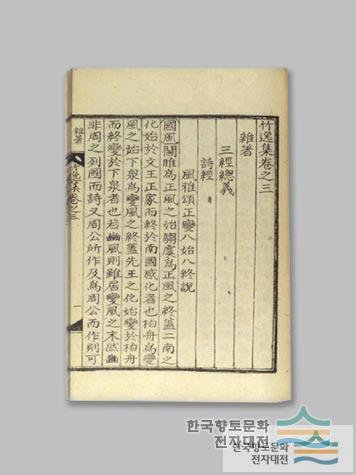 竹逸集卷之三
雜著
三經總義
詩經
風雅頌正變八始八終說
國風關雎爲正風之始騶虞爲正風之終蓋二南之
化始於文王正家而終於南國感化者也柏舟爲變
風之始下泉爲變風之終蓋先王之化始變於柏舟
而終變於下泉者也若豳風則雖居變風之末然豳
非周之列國而詩又周公所作及爲周公而作則可
雜著
卷之三
一
한국향토문화
전자대전
한국향토문화
전자대전